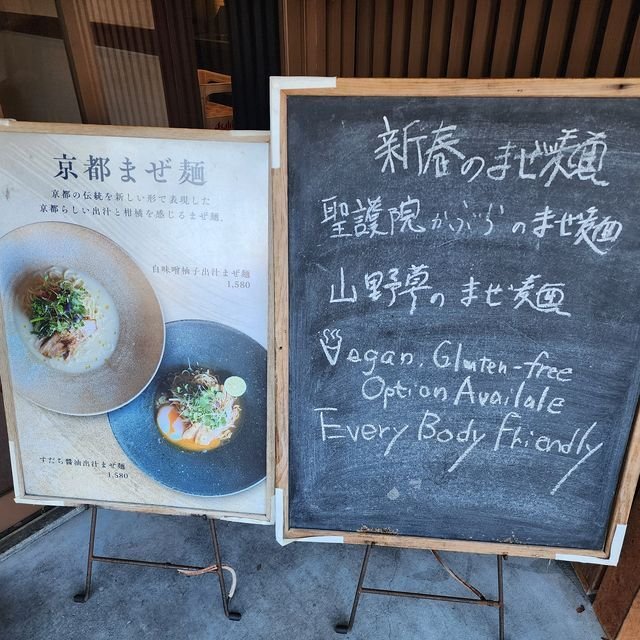 京都まぜ麺
京都の伝統を新しい形で表現した
京都らしい出汁と柑橘を感じるまぜ麺。
白味噌柚子出汁まぜ麺
1,580
すだち醤油出汁まぜ麺
1,580
新春のまぜ麺
聖護院かぶらのまぜ麺
山野草のまぜ麺
Vegan, Gluten-free
Option Availale
Every Body Fhiendly